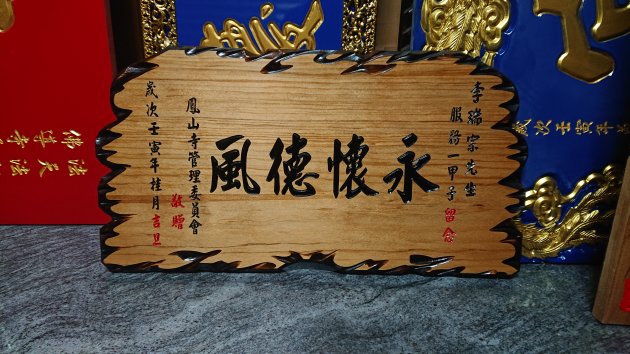 李瑞宗先生
服務一甲子留念
永懷德風
鳳山寺管理委員會
敬贈
歲次壬寅年桂月吉旦
歲次壬寅年
法天法